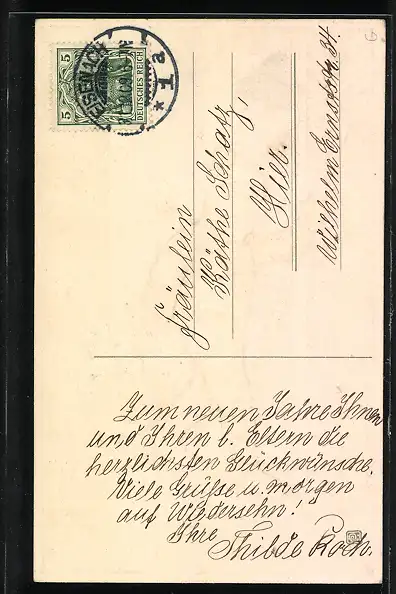 5
5
DEUTSCHES REICH
EISENACH
Fräulein
Käthe Schatz,
Hier.
Wilhelm Ernststr. 34.
Zum neuen Jahre Ihnen
und Ihren l. Eltern die
herzlichsten Glückwünsche.
Viele Grüße u. morgen
auf Wiedersehn!
Ihre
Thilde Koch.